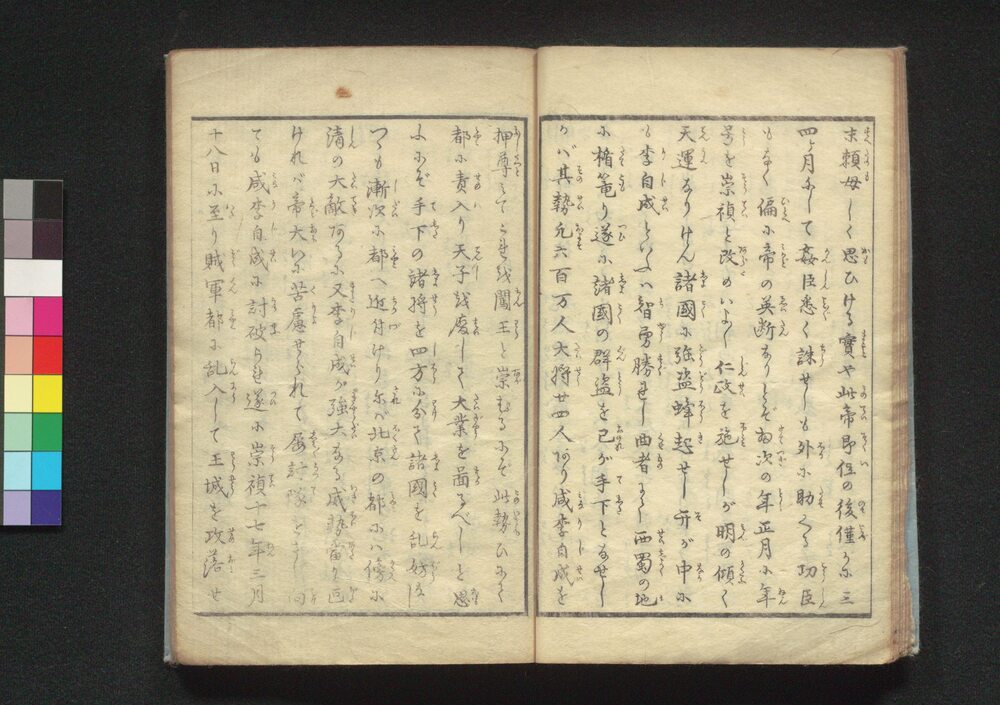 末頼母しく思ひける實や此帝即位の後僅かに三
四ヶ月にして姦臣悉く誅せしも外に助くる功臣
もなく偏に帝の英断なりとぞ扨次の年正月に年
号を崇禎と改めいよ〳〵仁政を施せしが明の傾く
天運なりけん諸國に強盗蜂起せし并が中に
も李自成といふハ智勇勝れし曲者にし西蜀の地
に楯篭り遂に諸國の群盗を己が手下となせし
かバ其勢凡六百万人大将廿四人あり咸李自成を
押尊してこれを闖王と崇むるにぞ此勢ひにて
都に責入り天子を廃して大業を啚るべしと思
ふにぞ手下の諸将を四方に分て諸國を乱妨し
つゝも漸次に都へ近付けり尓バ北京の都にハ傍に
清の大敵あるに又李自成が強大なる威勢當り
けれバ帝大いに苦慮せられて屡討隊を 向
ても咸李自成に討破られ遂に崇禎十七年三月
十八日に至り賊軍都に乱入して王城を攻落せ